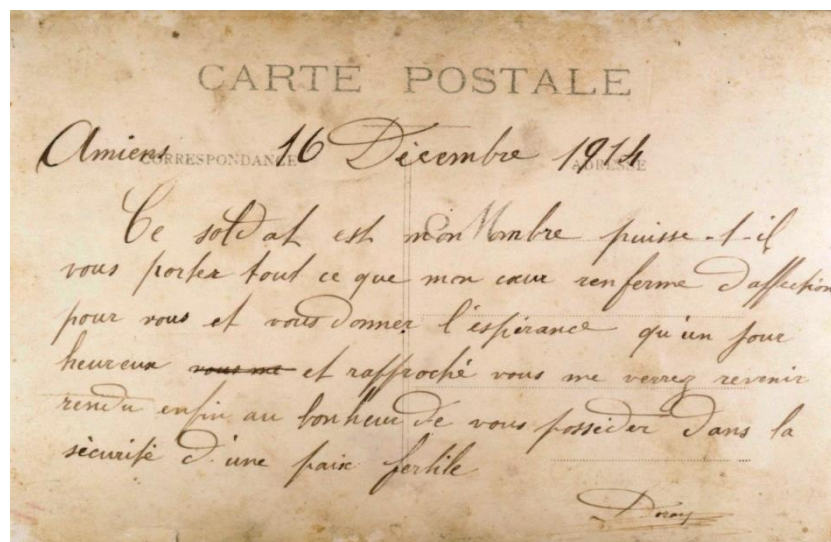 CARTE POSTALE
Amiens 16 Décembre 1914
CORRESPONDANCE ADRESSE
Ce soldat est mon ombre puisse-t-il
vous porter tout ce que mon cœur renferme d'affection
pour vous et vous donner l'espérance qu'un jour
heureux vous me et rapproché vous me verrez revenir
rendu enfin au bonheur de vous posséder dans la
sécurité d'une paix fertile